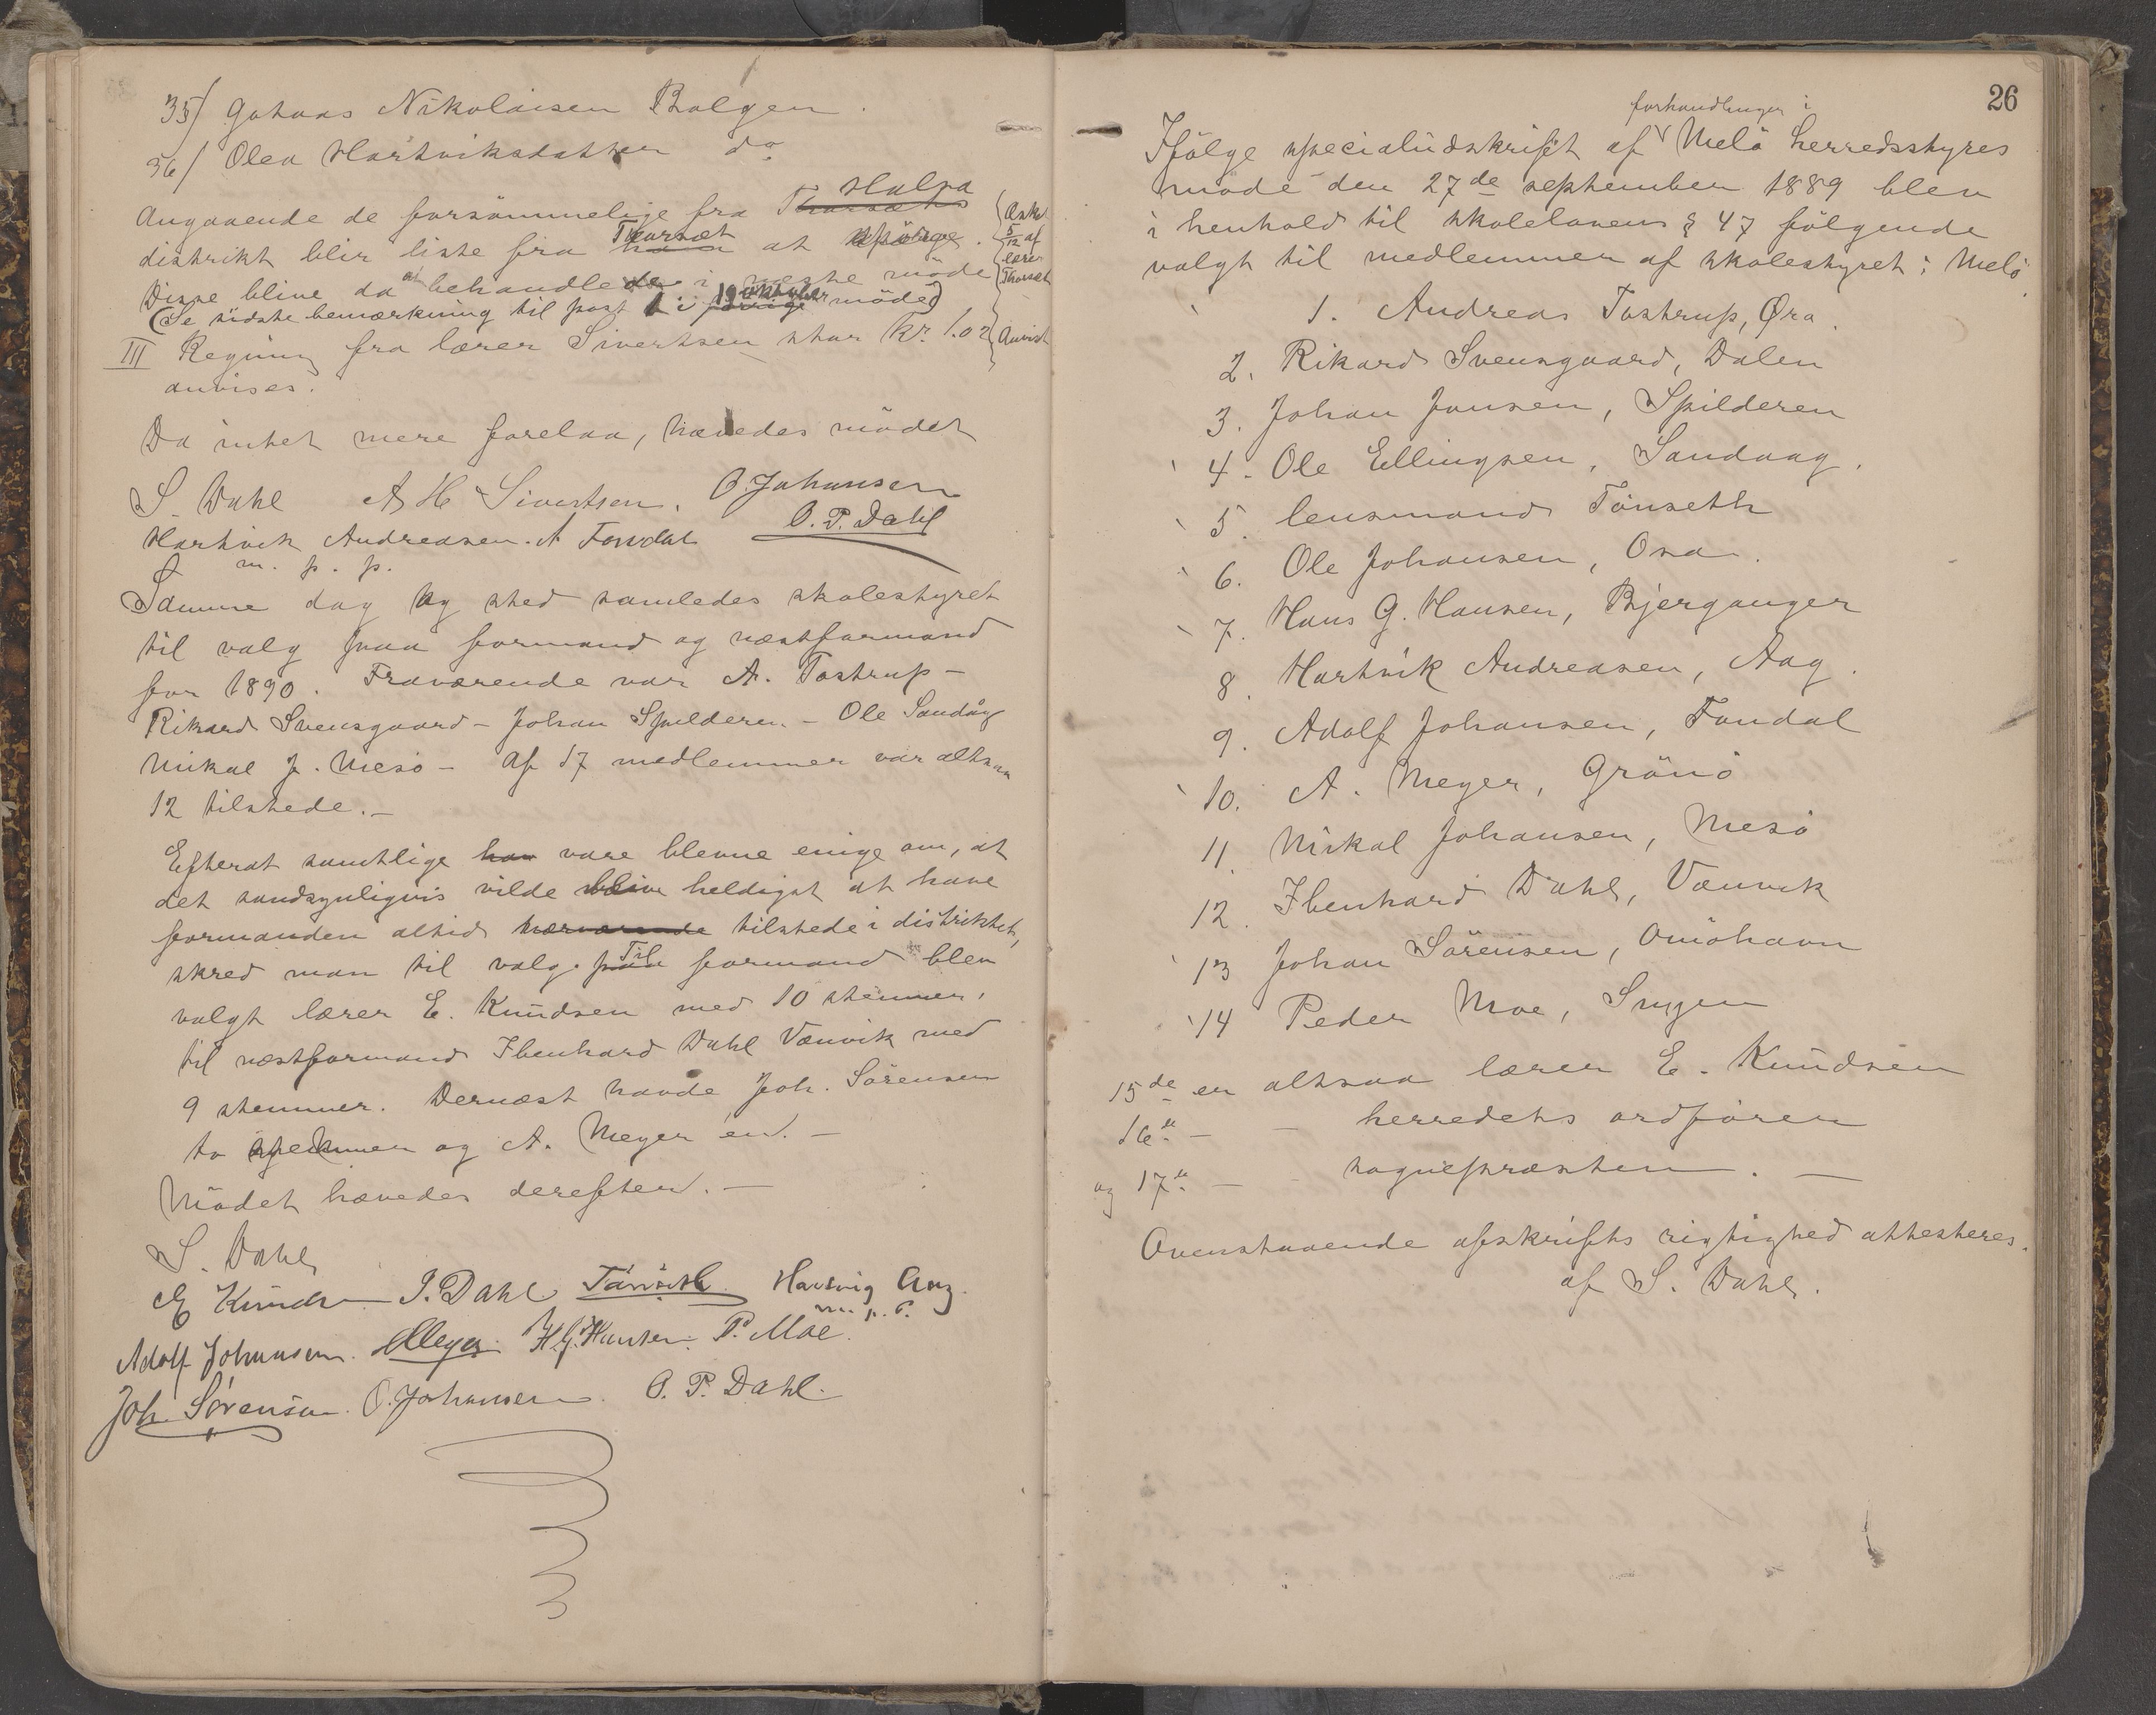 35/ Johans Nikolaisen Bolgen.
36/ Olea Hartviksdatter do
Angaaende de forsømmelige fra Thorsæts Halsa
distrikt blir liste fra ham Thorsæt at
Disse blive da at behandlede i næste møde
(Se sidste bemærkning til post 1 i forrige 19 oktober møde)
{Æsket 5/12 af lærer Thorsæt
III Regning fra lærer Sivertsen stor kr. 1.02 {Anvist
anvises.
Da intet mere forelaa, hævedes mødet
S. Dahl A H Sivertsen. O. Johansen
Hartvik Andreasen. A Fondal O. P. Dahl
m. p. p.
Samme dag og sted samledes skolestyret
til valg paa formand og næstformand
for 1890. Fraværende var A. Tostrup –
Rikard Svensgaard – Johan Spilderen – Ole Sandåg
Mikal J. Mesø – Af 17 medlemmer var altsaa
12 tilstede. –
Efterat samtlige har vare blevne enige om, at
det sandsynligvis vilde blive heldigst at have
formanden altid nærværende tilstede i distriktet,
skred man til valg. paa Til formand blev
valgt lærer E. Knudsen med 10 stemmer,
til næstformand Ibenhard Dahl Vænvik med
9 stemmer. Dernæst havde Joh. Sørensen
to stemmer og A. Meyer en. –
Mødet hævedes derefter. –
S. Dahl
E Knudsen I. Dahl Tønseth Hartvig Aag.
m. p. P.
Adolf Johansen. AMeyer. H. G. Hansen. P. Moe.
Joh. Sørensen. O. Johansen. O. P. Dahl.
26
Ifølge specialudskrift af forhandlinger i Melø herredsstyres
møde den 27de september 1889 blev
i henhold til skolelovens § 47 følgende
valgt til medlemmer af skolestyret i Melø
1. Andreas Tostrup, Øra.
2. Rikard Svensgaard, Dalen
3. Johan Jansen, Spilderen
4. Ole Ellingsen, Sandaag.
5. lensmand Tønseth
6. Ole Johansen, Osa.
7. Hans G. Hansen, Bjerganger
8. Hartvik Andreasen, Aag.
9. Adolf Johansen, Fondal
10. A. Meyer, Grønø
11. Mikal Johansen, Mesø
12. Ibenhard Dahl, Vænvik
13 Johan Sørensen, Omøhavn
14 Peder Moe, Svgen
15de er altsaa lærer E. Knudsen
16de – – herredets ordfører
og 17de – – sognepræsten. –
Ovenstaaende afskrifts rigtighed attesteres.
af S. Dahl.